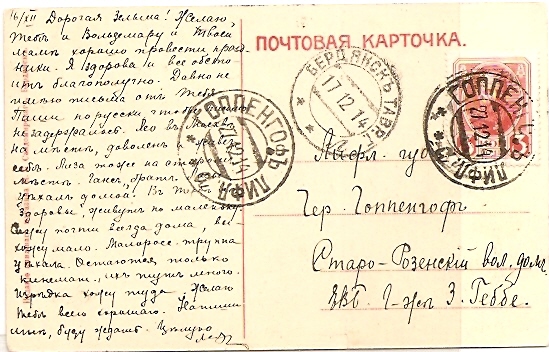 16/XII Дорогая Зельма! Желаю
Тебѣ и Вольдемару и Твоей
хорошо провести празд-
ники. Я здорова и все обсто-
итъ благополучно. Давно не
имѣю письма отъ Тебя.
Пиши по русски чтобы письмо
не задержалось. въ Москвѣ
на мѣстѣ, доволенъ
Лиза тоже на
мѣстѣ. Гансъ, братъ
уѣхалъ домой. Въ
здоровы живутъ по маленьку.
почти всегда дома,
хожу мало. Малоросс. труппа
уѣхала. Остаются только
кинемат., ихъ тутъ много.
Изрѣдка хожу туда. Желаю
Тебѣ всего хорошаго. Напиши
мнѣ, буду ждать. Цѣлую
ПОЧТОВАЯ КАРТОЧКА.
БЕРДЯНСКЪ ТАВР.
17.12.14
ГОППЕНГОФЪ ЛИФЛ.
21.12.14
ГОППЕНГОФЪ ЛИФЛ.
21.12.14
Лифл. губ.
Гер. Гоппенгофъ
Старо-Розенский вол. домъ
ЕВП. Г-жѣ З. Геббе.